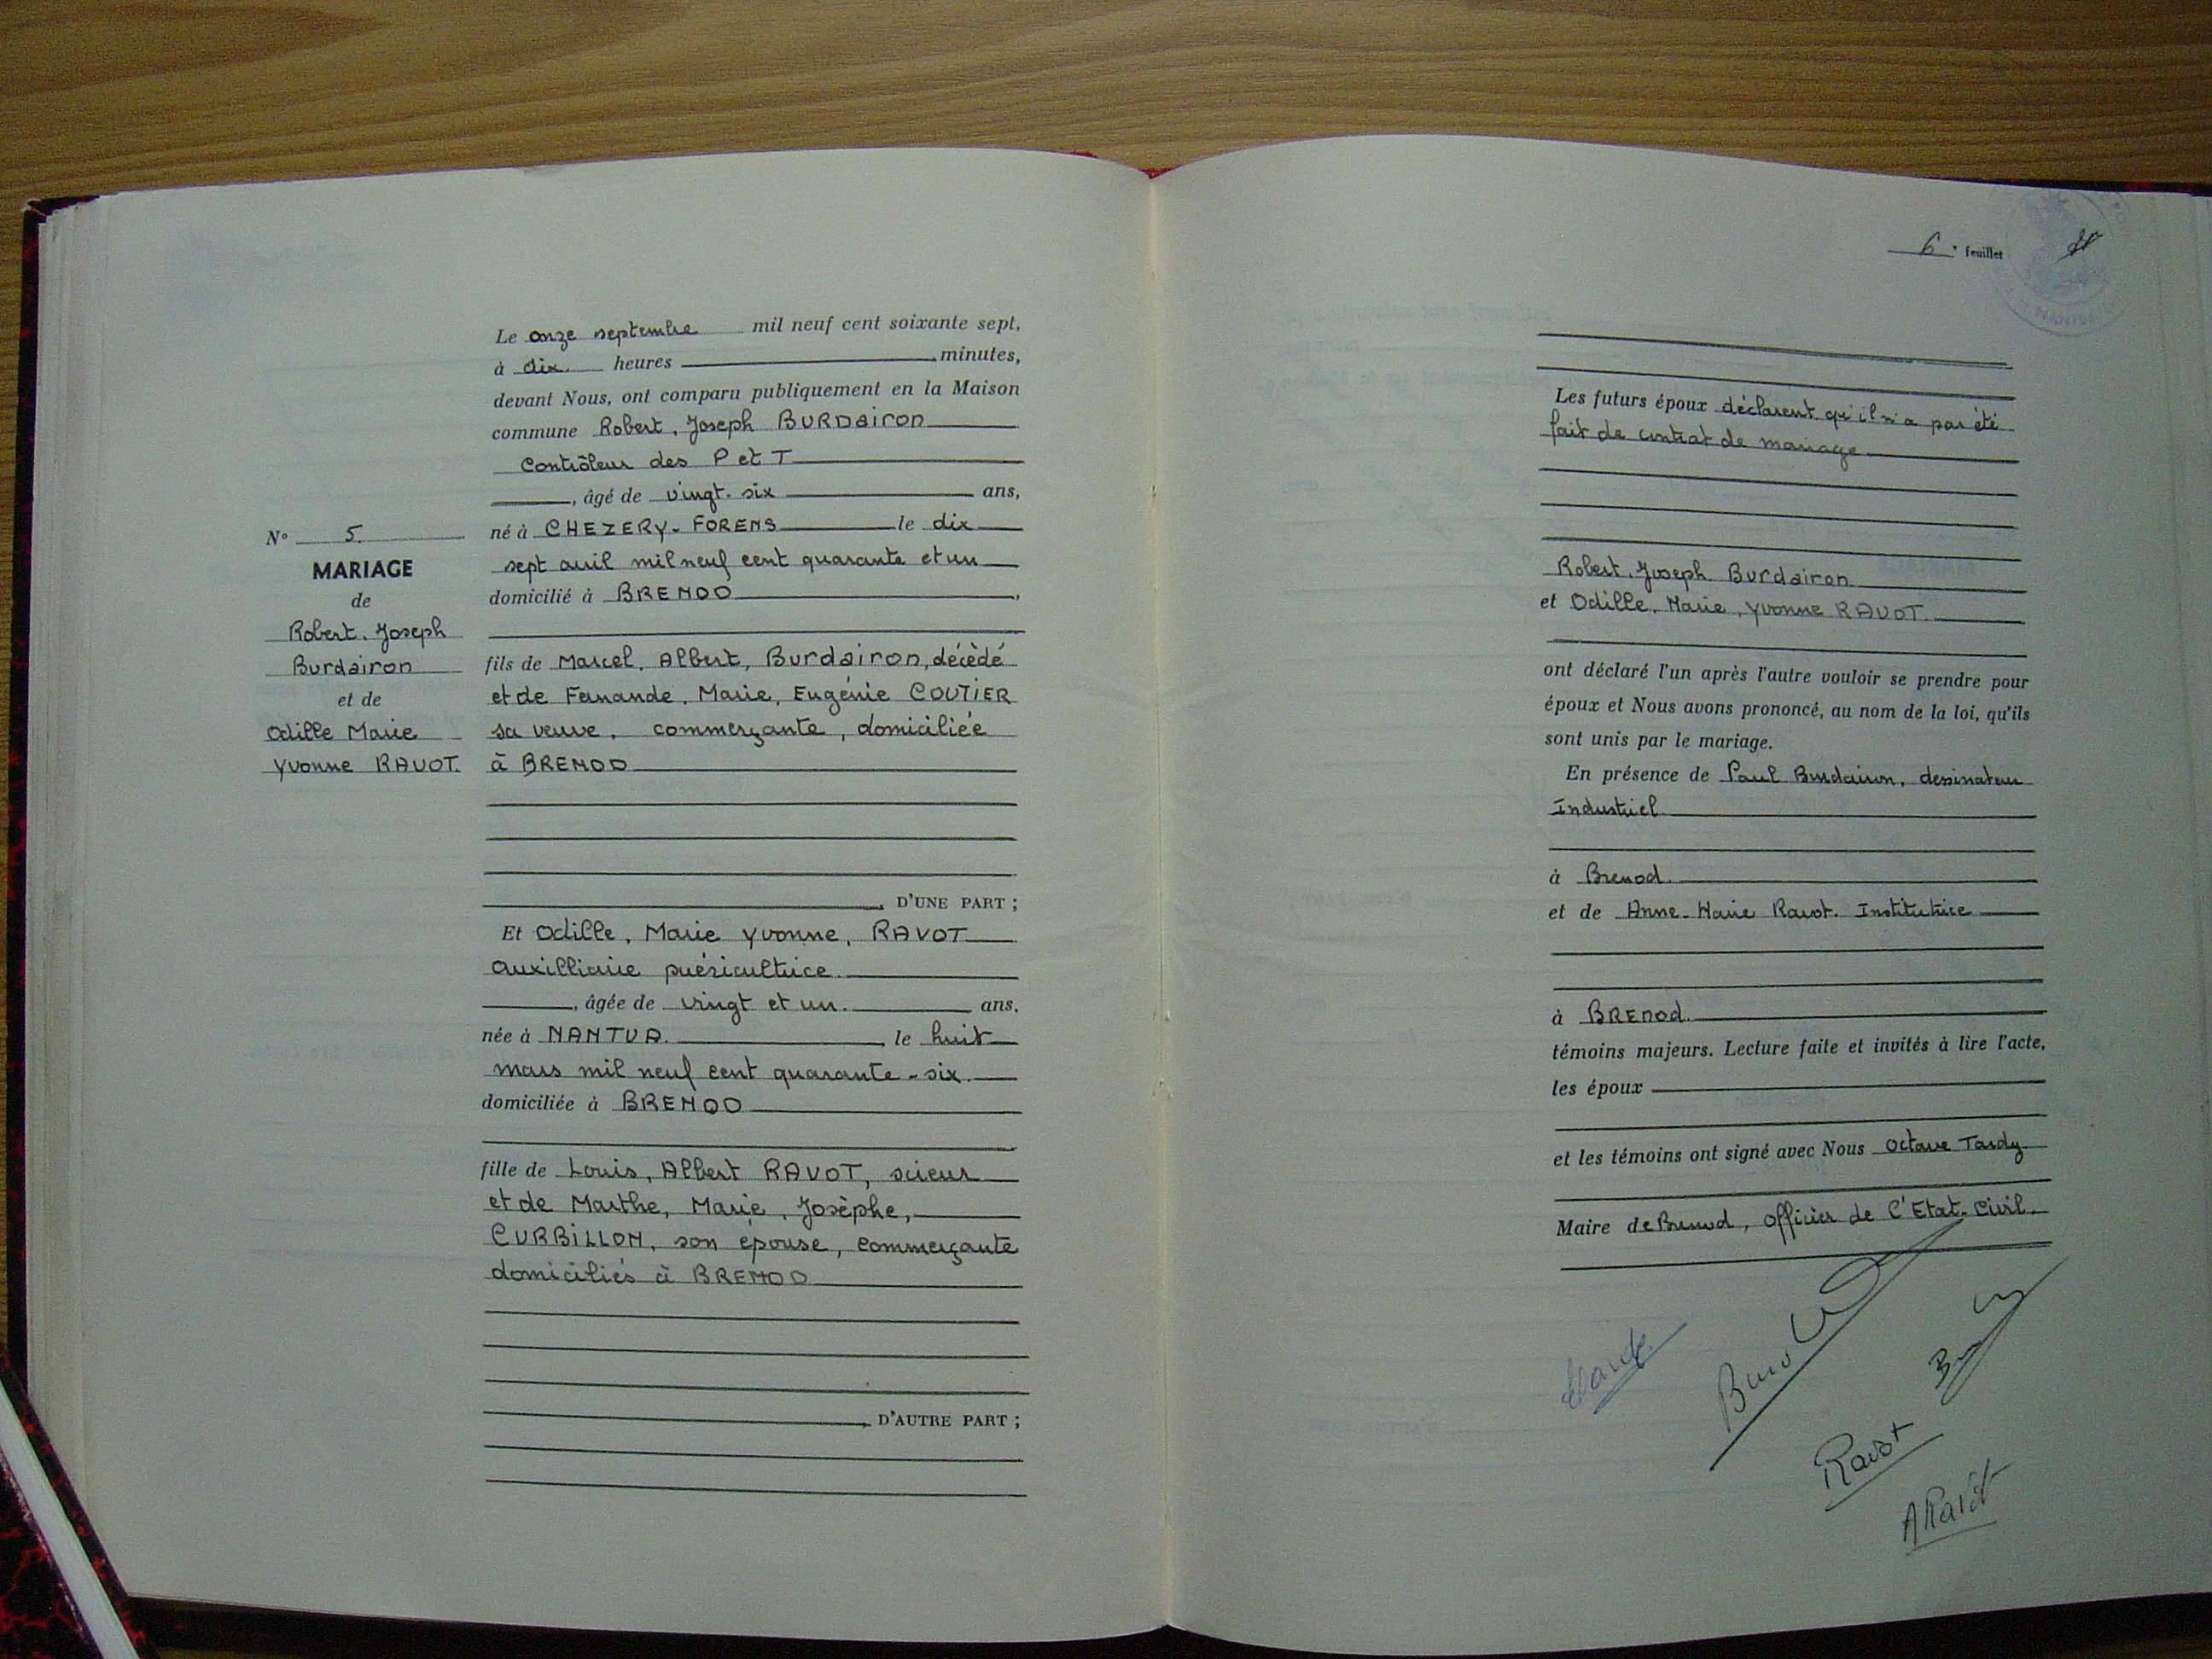 N° 5.
MARIAGE
de
Robert. Joseph
Burdairon
et de
Odille Marie
Yvonne RAVOT.
Le onze septembre mil neuf cent soixante sept,
à dix. heures minutes,
devant Nous, ont comparu publiquement en la Maison
commune Robert, Joseph BURDAIRON
Contrôleur des P et T
, âgé de vingt-six ans,
né à CHEZERY-FORENS le dix
sept avril mil neuf cent quarante et un
domicilié à BRENOD ,
fils de Marcel, Albert, Burdairon, décèdé
et de Fernande, Marie, Eugénie COUTIER
sa veuve, commerçante, domiciliée
à BRENOD
D'UNE PART ;
Et Odille, Marie Yvonne, RAVOT
auxilliaire puéricultrice.
, âgée de vingt et un. ans,
née à NANTUA. , le huit
mars mil neuf cent quarante-six.
domiciliée à BRENOD
fille de Louis, Albert RAVOT, scieur
et de Marthe, Marie, Josèphe,
CURBILLON, son épouse, commerçante
domiciliés à BRENOD
D'AUTRE PART ;
6e feuillet
NANTUA
Les futurs époux déclarent qu'il n'a pas été
fait de contrat de mariage
Robert, Joseph Burdairon
et Odille, Marie, Yvonne RAVOT.
ont déclaré l'un après l'autre vouloir se prendre pour
époux et Nous avons prononcé, au nom de la loi, qu'ils
sont unis par le mariage.
En présence de Paul Burdairon, dessinateur
Industriel
à Brenod.
et de Anne-Marie Ravot. Institutrice
à BRENOD.
témoins majeurs. Lecture faite et invités à lire l'acte,
les époux
et les témoins ont signé avec Nous Octave Tardy
Maire de Brenod, officier de l'Etat-Civil.
Ravot
A Ravot